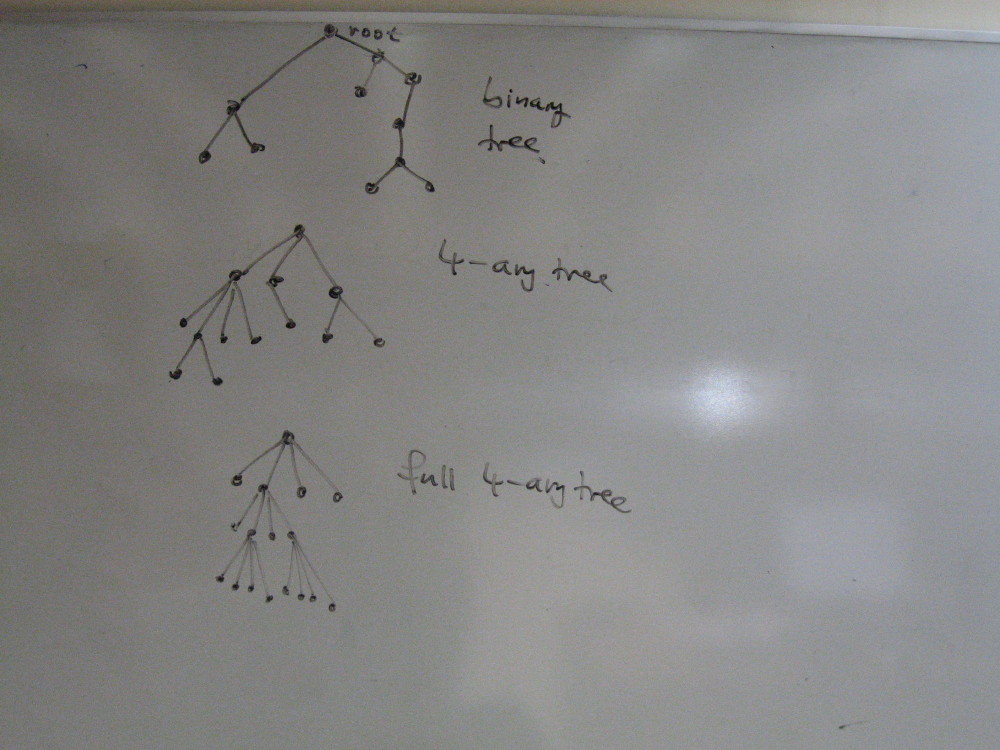 root
binary
tree
4-ary tree
full 4-ary tree